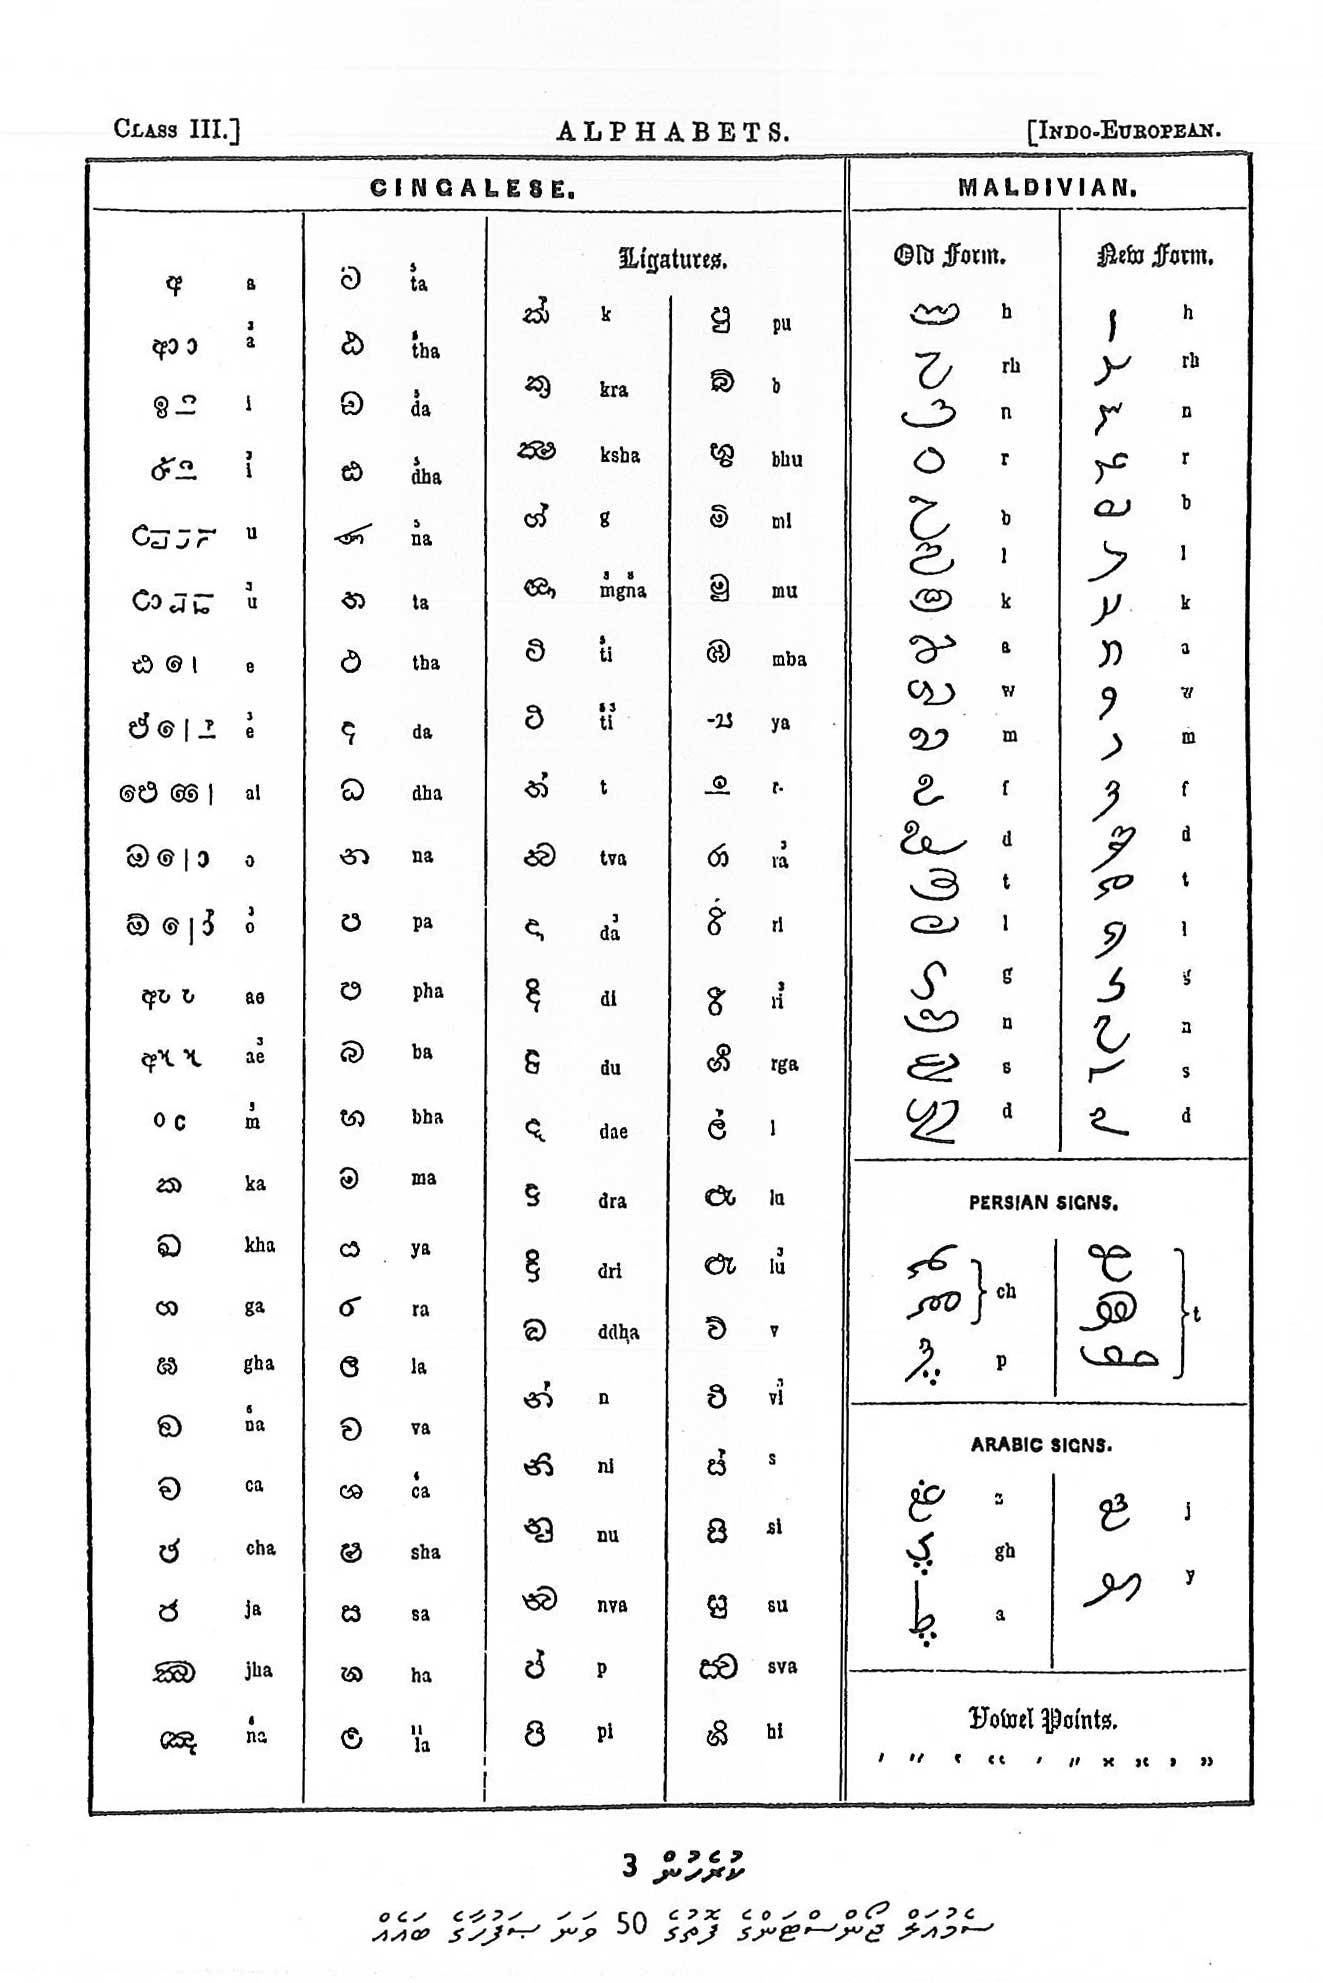 CLASS III.] ALPHABETS. [INDO-EUROPEAN.
CINGALESE.
අ a
ආ ා a
ඉ ි i
ඊ ී i
u
u
එ ෙ e
ඒ ේ e
ඓ ෛ ai
ඔ ො o
ඕ ෝ o
ඇ ැ ae
ඈ ෑ ae
m
ක ka
ඛ kha
ග ga
ඝ gha
ඞ na
ච ca
ඡ cha
ජ ja
ඣ jha
ඤ na
ට ta
ඨ tha
ඩ da
ඪ dha
ණ na
ත ta
ථ tha
ද da
ධ dha
න na
ප pa
ඵ pha
බ ba
භ bha
ම ma
ය ya
ර ra
ල la
ව va
ශ ca
ෂ sha
ස sa
හ ha
ළ la
Ligatures.
ක් k
ක්‍ර kra
ක්‍ෂ ksha
ග් g
mgna
ටි ti
ටී ti
ත් t
ත්‍ව tva
දා da
දි di
දු du
දැ dae
ද්‍ර dra
ද්‍රි dri
ද්‍ධ ddha
න් n
නි ni
නු nu
න්‍ව nva
ප් p
පි pi
පු pu
බ් b
භු bhu
මි mi
මු mu
ඹ mba
්‍ය ya
r
රා ra
රි ri
රී ri
ර්‍ග rga
ල් l
ලු lu
ලූ lu
ව් v
වි vi
ස් s
සි si
සු su
ස්‍ව sva
හි hi
MALDIVIAN.
Old Form.
h
rh
n
r
b
l
k
a
w
m
f
d
t
l
g
n
s
d
New Form.
ހ h
ށ rh
ނ n
ރ r
ބ b
ޅ l
ކ k
އ a
ވ w
މ m
ފ f
ދ d
ތ t
ލ l
ގ g
ޏ n
ސ s
ޑ d
PERSIAN SIGNS.
ch
p
t
ARABIC SIGNS.
z
gh
a
j
y
Vowel Points.
ކުރެހުން 3
ސެމުއަލް ޖޯންސްޓަންގެ ފޮތުގެ 50 ވަނަ ޞަފުހާގެ ބައެއް